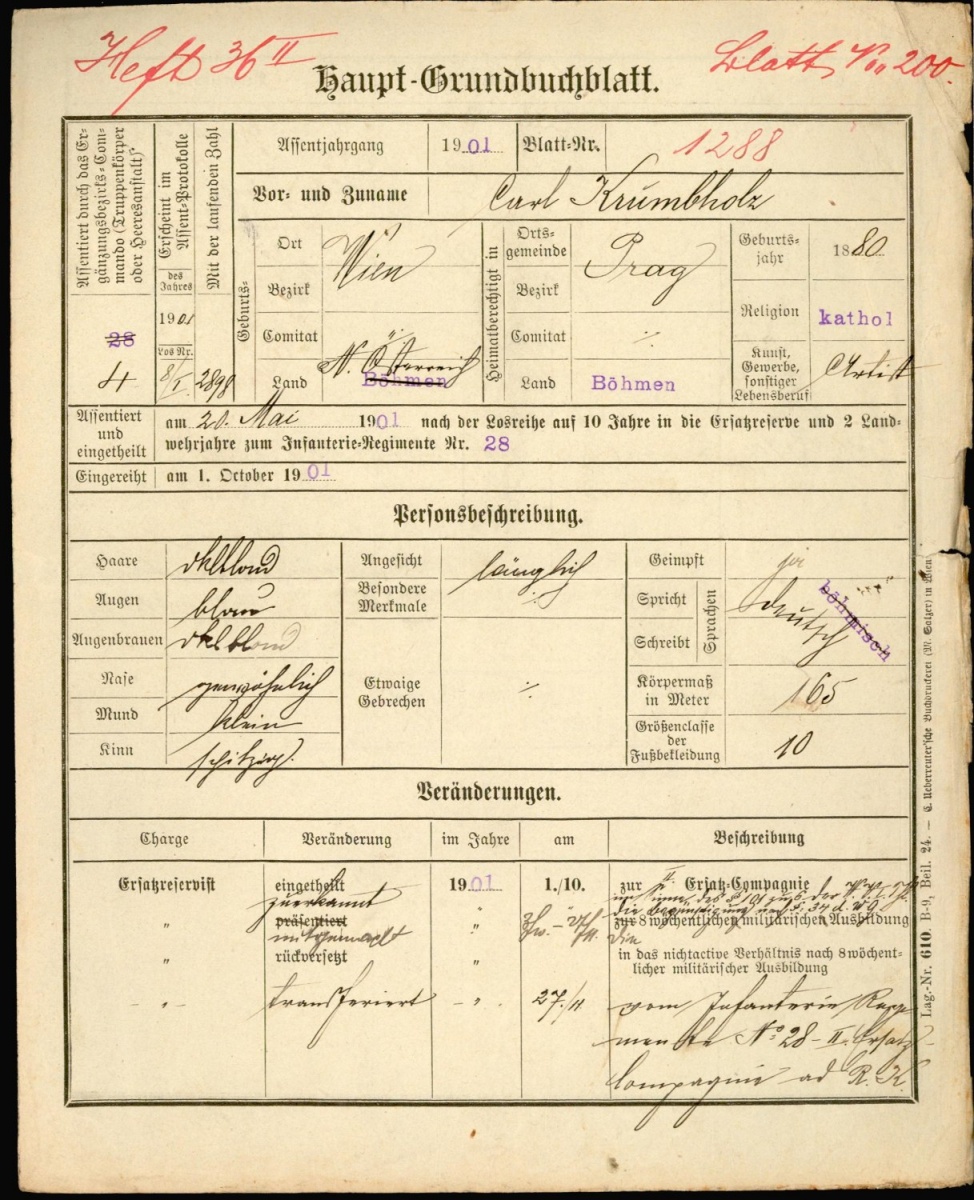 Heft 36 II
Blatt No 200.
Haupt-Grundbuchblatt.
Assentiert durch das Er-
gänzungsbezirks-Com-
mando (Truppenkörper
oder Heeresanstalt)
28
4
Erscheint im
Assent-Protokolle
des
Jahres
1901
Los Nr.
8/I.
Mit der laufenden Zahl
2898
Assentjahrgang
1901
Blatt-Nr.
1288
Vor- und Zuname
Carl Krumbholz
Geburts-
Ort
Wien
Bezirk
Comitat
Land
N. Österreich
Böhmen
Heimatberechtigt in
Orts-
gemeinde
Prag
Bezirk
Comitat
Land
Böhmen
Geburts-
jahr
1880
Religion
kathol
Kunst,
Gewerbe,
sonstiger
Lebensberuf
Artist
Assentiert
und
eingetheilt
am 20. Mai 1901 nach der Losreihe auf 10 Jahre in die Ersatzreserve und 2 Land-
wehrjahre zum Infanterie-Regimente Nr. 28
Eingereiht
am 1. October 1901
Personsbeschreibung.
Haare
dklblond
Augen
blau
Augenbrauen
dklblond
Nase
gewöhnlich
Mund
klein
Kinn
spitzig.
Angesicht
länglich
Besondere
Merkmale
÷
Etwaige
Gebrechen
÷
Geimpft
ja
Spricht
Schreibt
Sprachen
deutsch
böhmisch
Körpermaß
in Meter
165
Größenclasse
der
Fußbekleidung
10
Veränderungen.
Charge
Veränderung
im Jahre
am
Beschreibung
Ersatzreservist
eingetheilt
1901
1./10.
zur II Ersatz-Compagnie
"
zuerkannt
präsentiert
"
die Begünstigung des §. 34 d. W. G.
zur 8 wöchentlichen militärischen Ausbildung
"
rückversetzt
"
in das nichtactive Verhältnis nach 8 wöchent-
licher militärischer Ausbildung
- " -
transferiert
- " -
27./11.
vom Infanterie Regi-
mente No 28 - II. Ersatz
Compagnie ad R. K.
Lag.-Nr. 610. B-9, Beil. 24. — C. Ueberreuter'sche Buchdruckerei (M. Salzer) in Wien